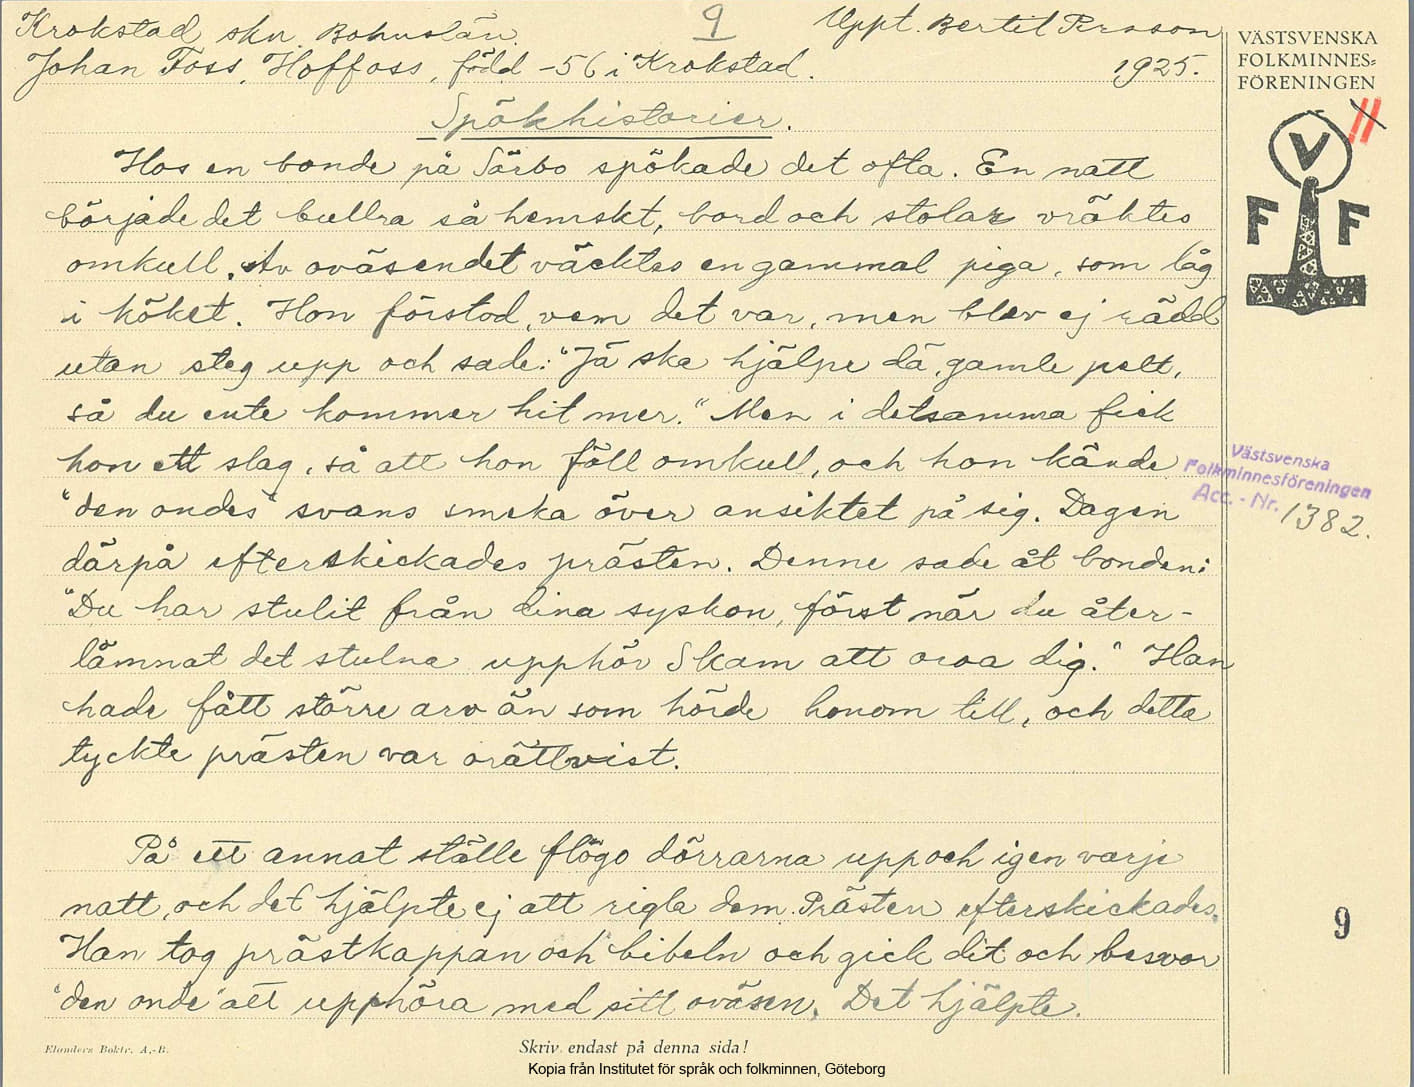 Krokstad skn Bohuslän.
9
Uppt. Bertil Persson
Johan Foss, Hoffoss, född -56 i Krokstad.
1925.
VÄSTSVENSKA
FOLKMINNES=
FÖRENINGEN
II
V
F F
Spökhistorier.
Hos en bonde på Sörbo spökade det ofta. En natt
började det bullra så hemskt, bord och stolar vräktes
omkull. Av oväsendet väcktes en gammal piga, som låg
i köket. Hon förstod, vem det var, men blev ej rädd
utan steg upp och sade: "Ja ska hjälpe dä, gamle pelt,
så du ente kommer hit mer." Men i detsamma fick
hon ett slag, så att hon föll omkull, och hon kände
"den ondes" svans smeka över ansiktet på sig. Dagen
därpå efterskickades prästen. Denne sade åt bonden:
"Du har stulit från dina syskon, först när du åter-
lämnat det stulna upphör Skam att oroa dig." Han
hade fått större arv än som hörde honom till, och detta
tyckte prästen var orättvist.
Västsvenska
Folkminnesföreningen
Acc. - Nr. 1382.
På ett annat ställe flögo dörrarna upp och igen varje
natt, och det hjälpte ej att rigla dem. Prästen efterskickades.
Han tog prästkappan och bibeln och gick dit och besvor
"den onde" att upphöra med sitt oväsen. Det hjälpte.
9
Elanders Boktr. A.-B.
Skriv endast på denna sida!
Kopia från Institutet för språk och folkminnen, Göteborg